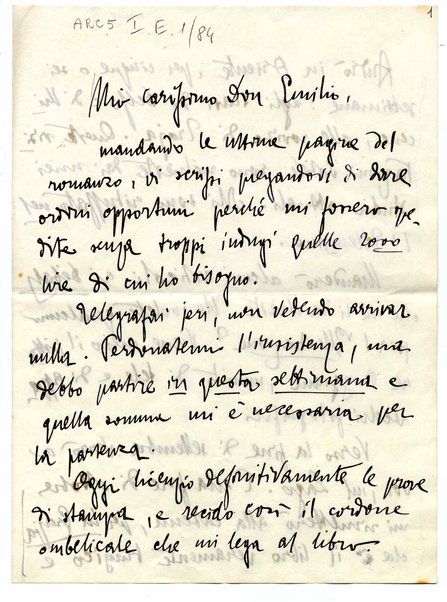 ARC5 I.E.1/84
1
Mio carissimo Don Emilio,
mandando le ultime pagine del
romanzo, vi scrissi pregandovi di dare
ordini opportuni perché mi fossero spe-
dite senza troppi indugi quelle 2000
lire di cui ho bisogno.
Telegrafai jeri, non vedendo arrivar
nulla. Perdonatemi l'insistenza, ma
debbo partire in questa settimana e
quella somma mi è necessaria per
la partenza.
Oggi licenzio definitivamente le prove
di stampa, e recido così il cordone
ombelicale che mi lega al libro.